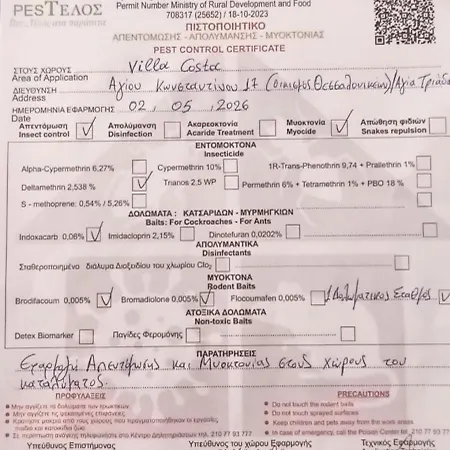 PESTΕΛΟΣ
Permit Number Ministry of Rural Development and Food
708317 (25652) / 18-10-2023
ΠΙΣΤΟΠΟΙΗΤΙΚΟ
ΑΠΕΝΤΟΜΩΣΗΣ - ΑΠΟΛΥΜΑΝΣΗΣ - ΜΥΟΚΤΟΝΙΑΣ
PEST CONTROL CERTIFICATE
ΣΤΟΥΣ ΧΩΡΟΥΣ Villa Costa
Area of Application
ΔΙΕΥΘΥΝΣΗ Αγίου Κωνσταντίνου 17 (Θεσσαλονικέων)/Αγία Τριάδα
Address
ΗΜΕΡΟΜΗΝΙΑ ΕΦΑΡΜΟΓΗΣ 02, 05, 2026
Date
Απεντόμωση Απολύμανση Ακαρεοκτονία Μυοκτονία Απώθηση φιδιών
Insect control Disinfection Acaride Treatment Myocide Snakes repulsion
ΕΝΤΟΜΟΚΤΟΝΑ
Insecticide
Alpha-Cypermethrin 6,27% Cypermethrin 10% 1R-Trans-Phenothrin 9,74 + Prallethrin 1%
Deltamethrin 2,538 % Trianos 2,5 WP Permethrin 6% + Tetramethrin 1% + PBO 18 %
S - methoprene: 0,54% / 5,26%
ΔΟΛΩΜΑΤΑ : ΚΑΤΣΑΡΙΔΩΝ - ΜΥΡΜΗΓΚΙΩΝ
Baits: For Cockroaches - For Ants
Indoxacarb 0,06% Imidacloprin 2,15% Dinotefuran 0,0202%
ΑΠΟΛΥΜΑΝΤΙΚΑ
Disinfectants
Σταθεροποιημένο διάλυμα Διοξειδίου του χλωρίου Clo2
ΜΥΟΚΤΟΝΑ
Rodent Baits
Brodifacoum 0,005% Bromadiolone 0,005% Flocoumafen 0,005% Δολωματικός Σταθμός
ΑΤΟΞΙΚΑ ΔΟΛΩΜΑΤΑ
Non-toxic Baits
Detex Biomarker Παγίδες Φερομόνης
ΠΑΡΑΤΗΡΗΣΕΙΣ
Εφαρμογή Απεντόμωσης και Μυοκτονίας στους χώρους του
καταλύματος.
ΠΡΟΦΥΛΑΞΕΙΣ PRECAUTIONS
Μην αγγίζετε τα δολώματα των τρωκτικών Do not touch the rodent baits
Μην αγγίζετε τις ψεκασμένες επιφάνειες Do not touch sprayed surfaces
Κρατήστε μακριά από τους χώρους που πραγματοποιήθηκαν οι εργασίες Keep children and pets away from the work areas
παιδιά και κατοικίδια ζώα In case of emergency, call the Poison Center tel. 210 77 93 777
Σε περίπτωση ανάγκης τηλεφωνήστε στο Κέντρο Δηλητηριάσεων τηλ. 210 77 93 777
Υπεύθυνος Επιστήμονας Υπεύθυνος του χώρου Εφαρμογής Τεχνικός Εφαρμογής